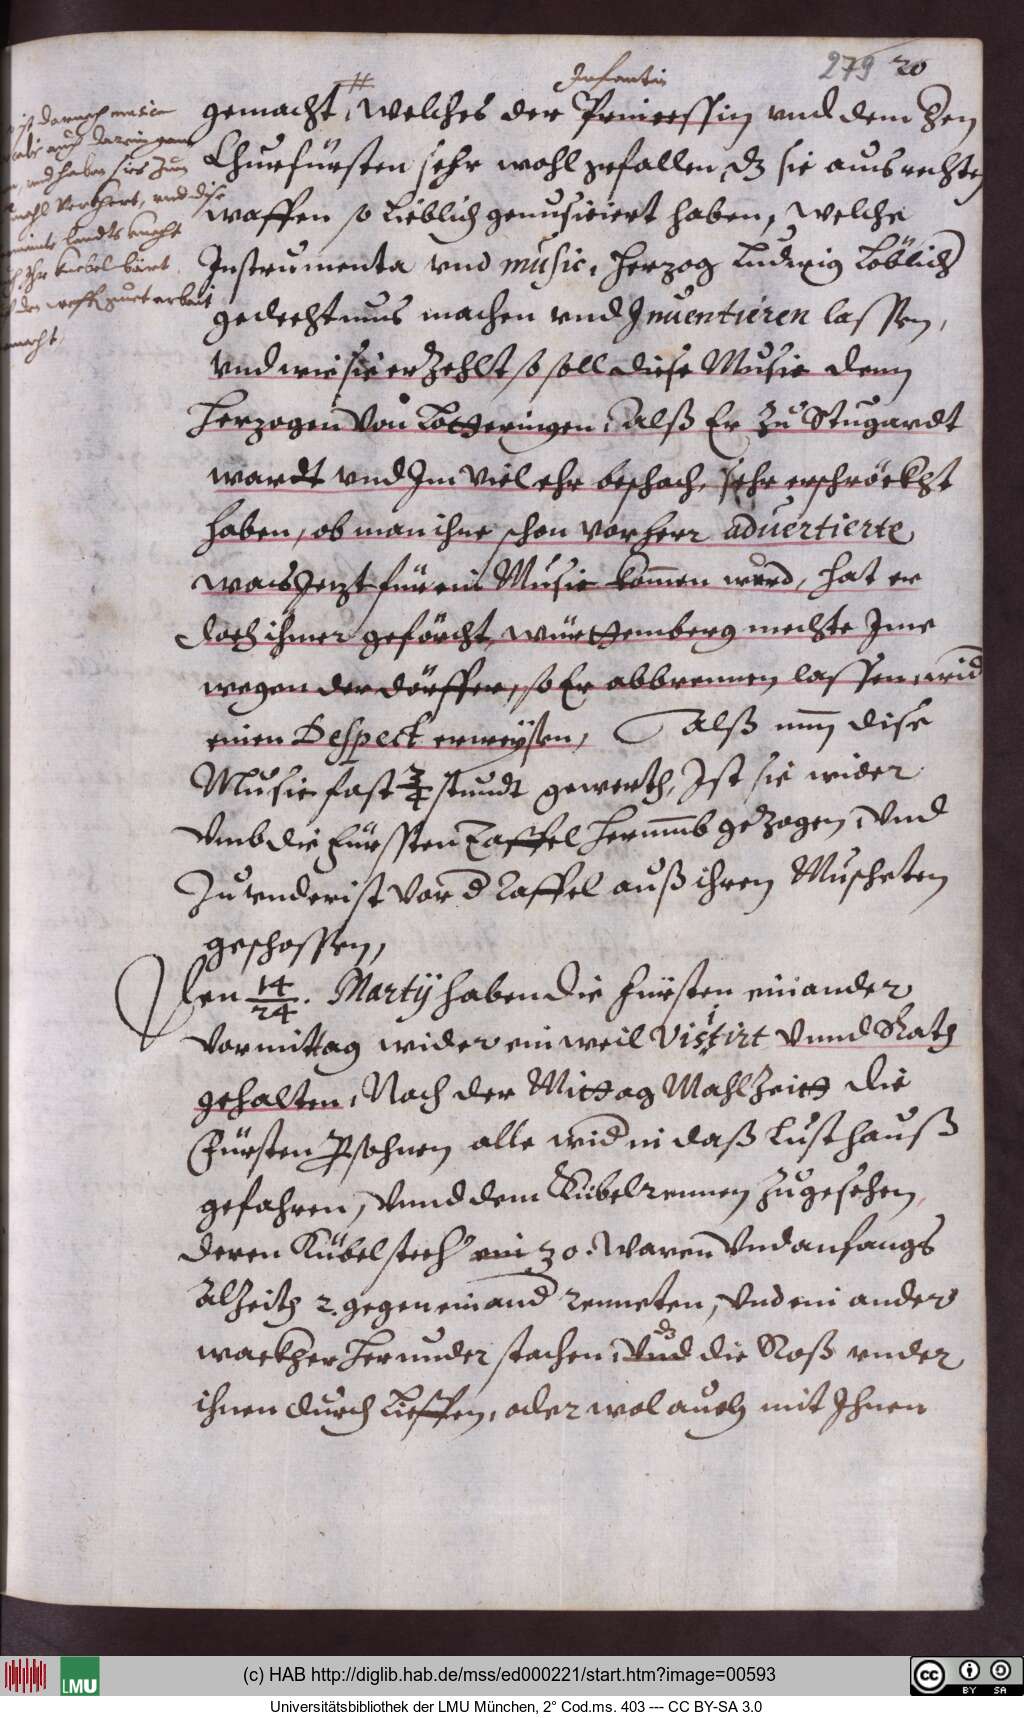 279 20
Infantin
gemacht, welches der Princessin vnd dem Hen
Churfürsten sehr wohl gefallen, dz sie aus rechten
waffen so lieblich gemusiciert haben, welche
Instrumenta vnd music, Herzog Ludwig löblich
gedechtnus machen vnd Inuentieren lassen,
vnd wie sie erzehlt so soll diese Music dem
Herzogen von Lottringen, Alß Er zu Stugardt
wardt vnd Im viel ehr beschach, sehr erschröckht
haben, ob man ihne schon vorherr aduertierte
was Jezt für ein Music kommen würd, hat er
doch immer geförcht, württemberg mechte Ime
wegen der dörffer, so Er abbrennen lassen wid
einen Despect erweysen, Alß nun dise
Music fast 3/4 stundt gewerth, Ist sie wider
vmb die Fürsten Taffel herumb gezogen, vnd
zu vnderist vor d Taffel auß ihren Muscheten
geschossen,
Den 14/24. Martij haben die Fürsten einander
vormittag wider ein weil Visitirt vnnd Rath
gehalten, Nach der Mittag Mahlzeitt die
Fürsten Psohnen alle wid in daß Lusthauß
gefahren, vnnd dem Kübelrennen zugesehen,
deren Kübelstech ein 30. waren vnd anfangs
Alzeith 2. gegen einand renneten, vnd ein ander
wackher herunder stachen, vnd die Roß vnder
dz
ihnen durch lieffen, oder wol auch mit Ihnen
ist darnach
auch darin gan
vnd haben sies zum
mahl verkhert, vnd dise
landts knecht
Ihr knebel bärt
macht,
(c) HAB http://diglib.hab.de/mss/ed000221/start.htm?image=00593
LMU
cc BY SA
Universitätsbibliothek der LMU München, 2° Cod.ms. 403 --- CC BY-SA 3.0